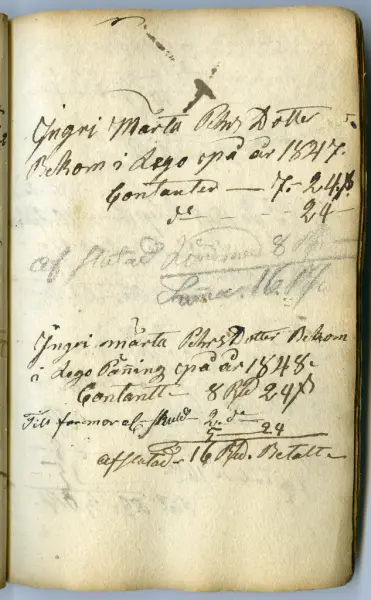 Jngri Märta Pehrs Dotter
Bekom i Lego på år 1847.
Contanter — 7 - 24 ß
do - - 24 -
af slutad 8
Suma 16 Rd
Jngri märta Pehrs Dotter Bekom
i Lego Päning på år 1848 -
Contantt - 8 Rd 24 ß
Till formor af skuld 2 do
5 24
afslutad 16 Rd. Betalt -